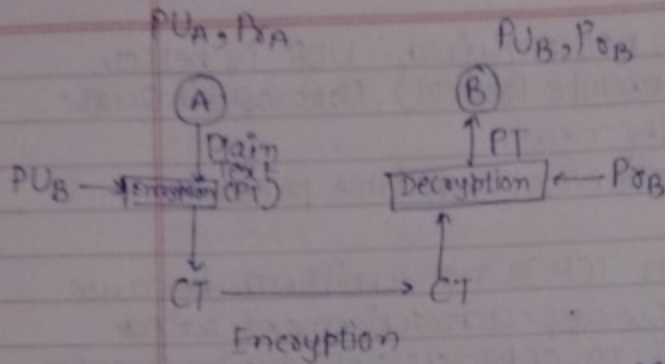 PUA, PrA
PUB, PrB
A
B
Plain
Text
(PT)
PT
PUB
Encryption
Decryption
PrB
CT
CT
Encryption